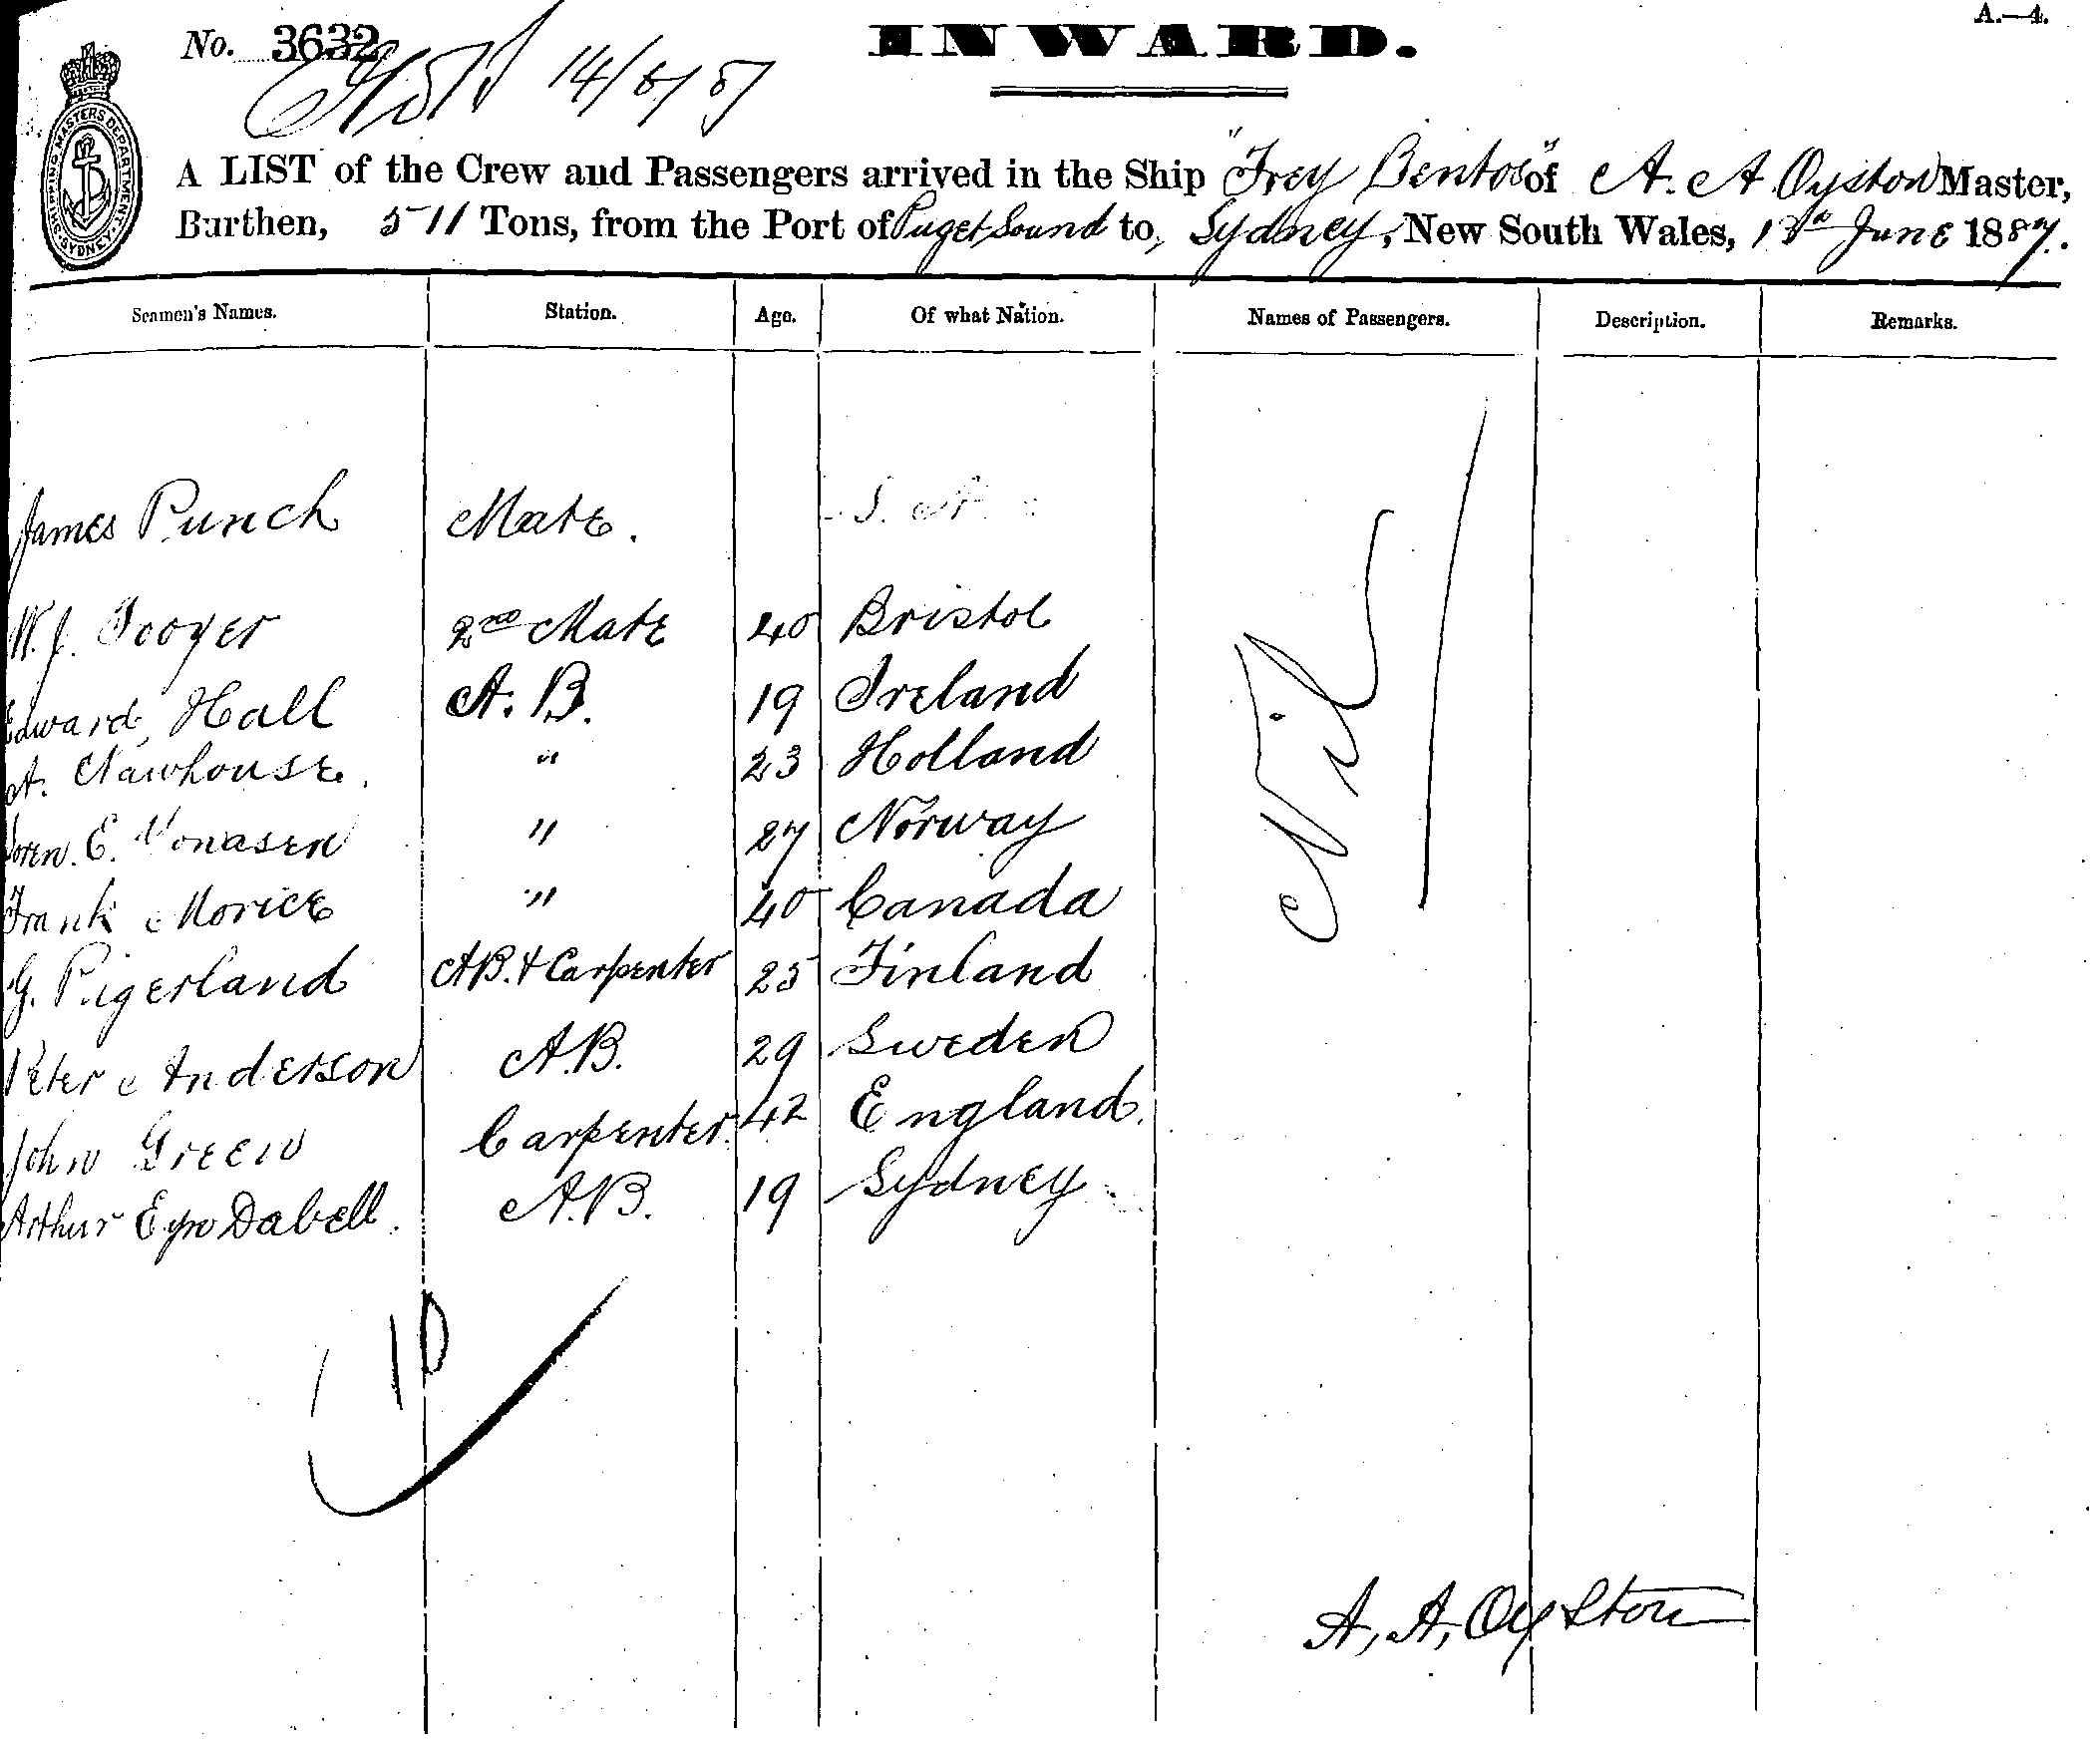 A.—4.
No. 3632
INWARD.
14/6/87
SHIPPING MASTERS DEPARTMENT SYDNEY
A LIST of the Crew and Passengers arrived in the Ship "Frey Bentos" of A. A. Oyston Master,
Burthen, 511 Tons, from the Port of Puget Sound to, Sydney, New South Wales, June 1887.
Seamen's Names. Station. Age. Of what Nation. Names of Passengers. Description. Remarks.
James Punch Mate.
W. J. 2nd Mate 40 Bristol
Edward Hall A. B. 19 Ireland
A. Nawhouse. " 23 Holland
Soren. E. Monasen " 27 Norway
Frank Morice " 40 Canada
G. Rigerland A.B. & Carpenter 25 Finland
Peter Anderson A.B. 29 Sweden
John Green Carpenter. 42 England.
Arthur Dabell. A.B. 19 Sydney
Nil
10
A, A, Oyston